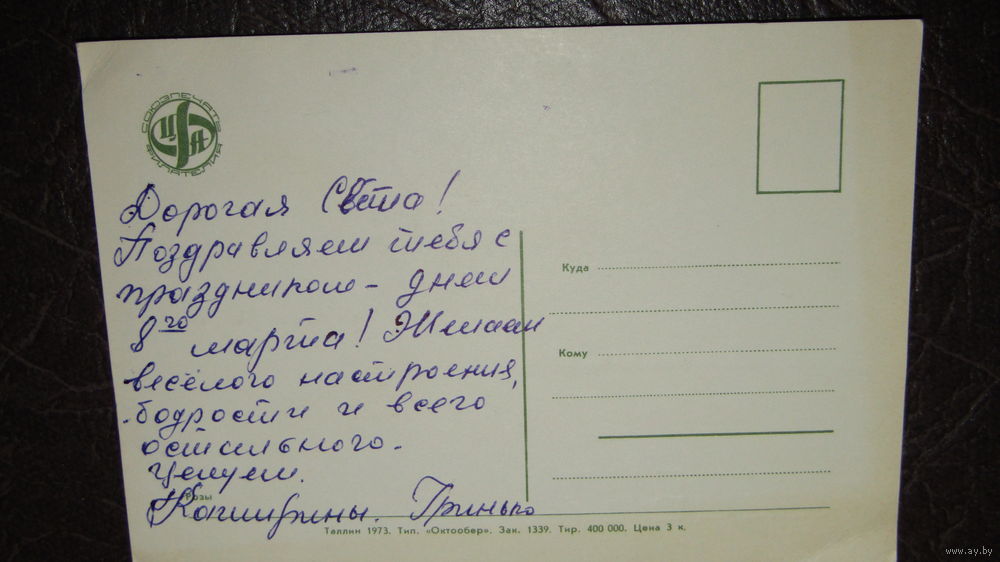 СОЮЗПЕЧАТЬ
ЦФА
ФИЛАТЕЛИЯ
Дорогая Света!
Поздравляем тебя с
праздником - днем
8го марта! Желаем
весёлого настроения,
бодрости и всего
остального.
Целуем.
Розы
Каширины. Гринько
Куда
Кому
Таллин 1973. Тип. «Октообер». Зак. 1339. Тир. 400 000. Цена 3 к.
www.ay.by